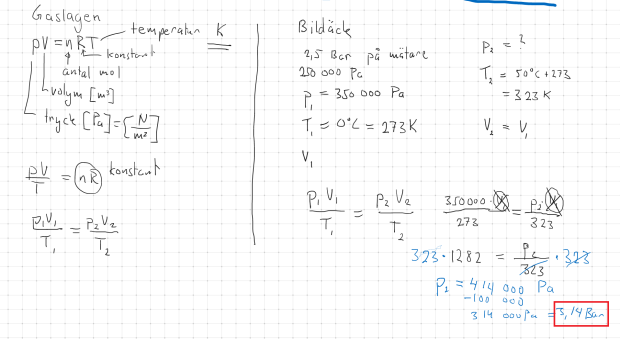 Gaslagen
pV = nRT temperatur K
konstant
antal mol
volym [m³]
tryck [Pa] = [N/m²]
pV/T = nR konstant
p₁V₁/T₁ = p₂V₂/T₂
Bildäck
2,5 Bar på mätare
250 000 Pa
p₁ = 350 000 Pa
T₁ = 0°C = 273K
V₁
p₂ = ?
T₂ = 50°C + 273
= 323K
V₂ = V₁
p₁V₁/T₁ = p₂V₂/T₂
350000·V₁/273 = p₂·V₁/323
323·1282 = p₂/323 · 323
p₂ = 414 000 Pa
-100 000
314 000 Pa = 3,14 Bar